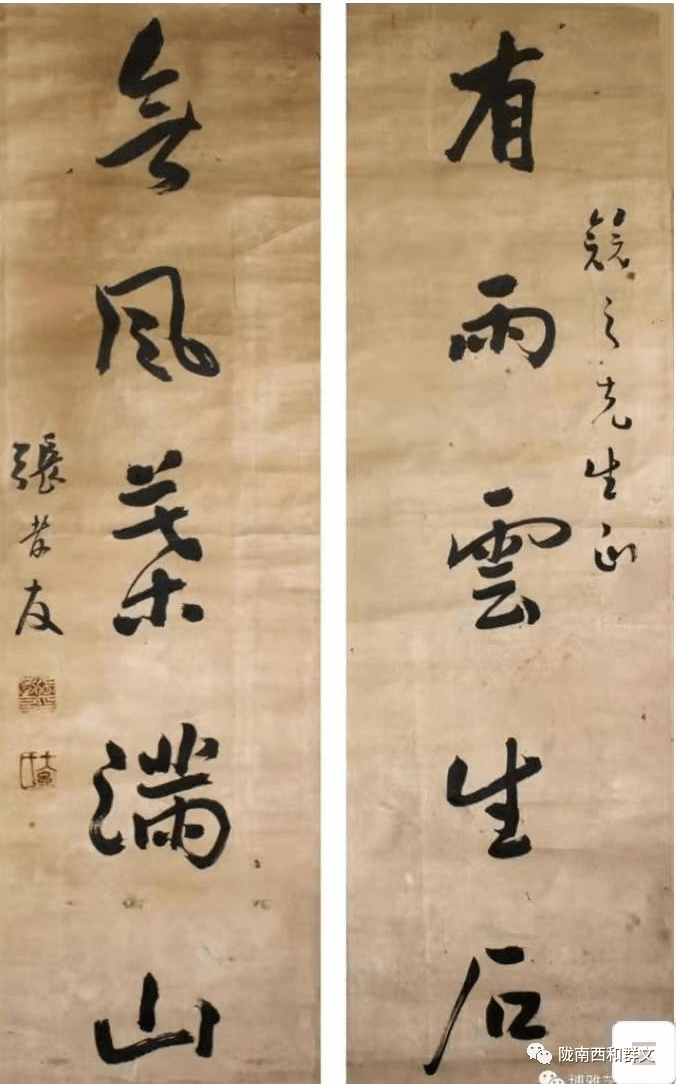 之先生正
有雨雲生石
無風葉滿山
張孝友
陇南西和群文
博雅